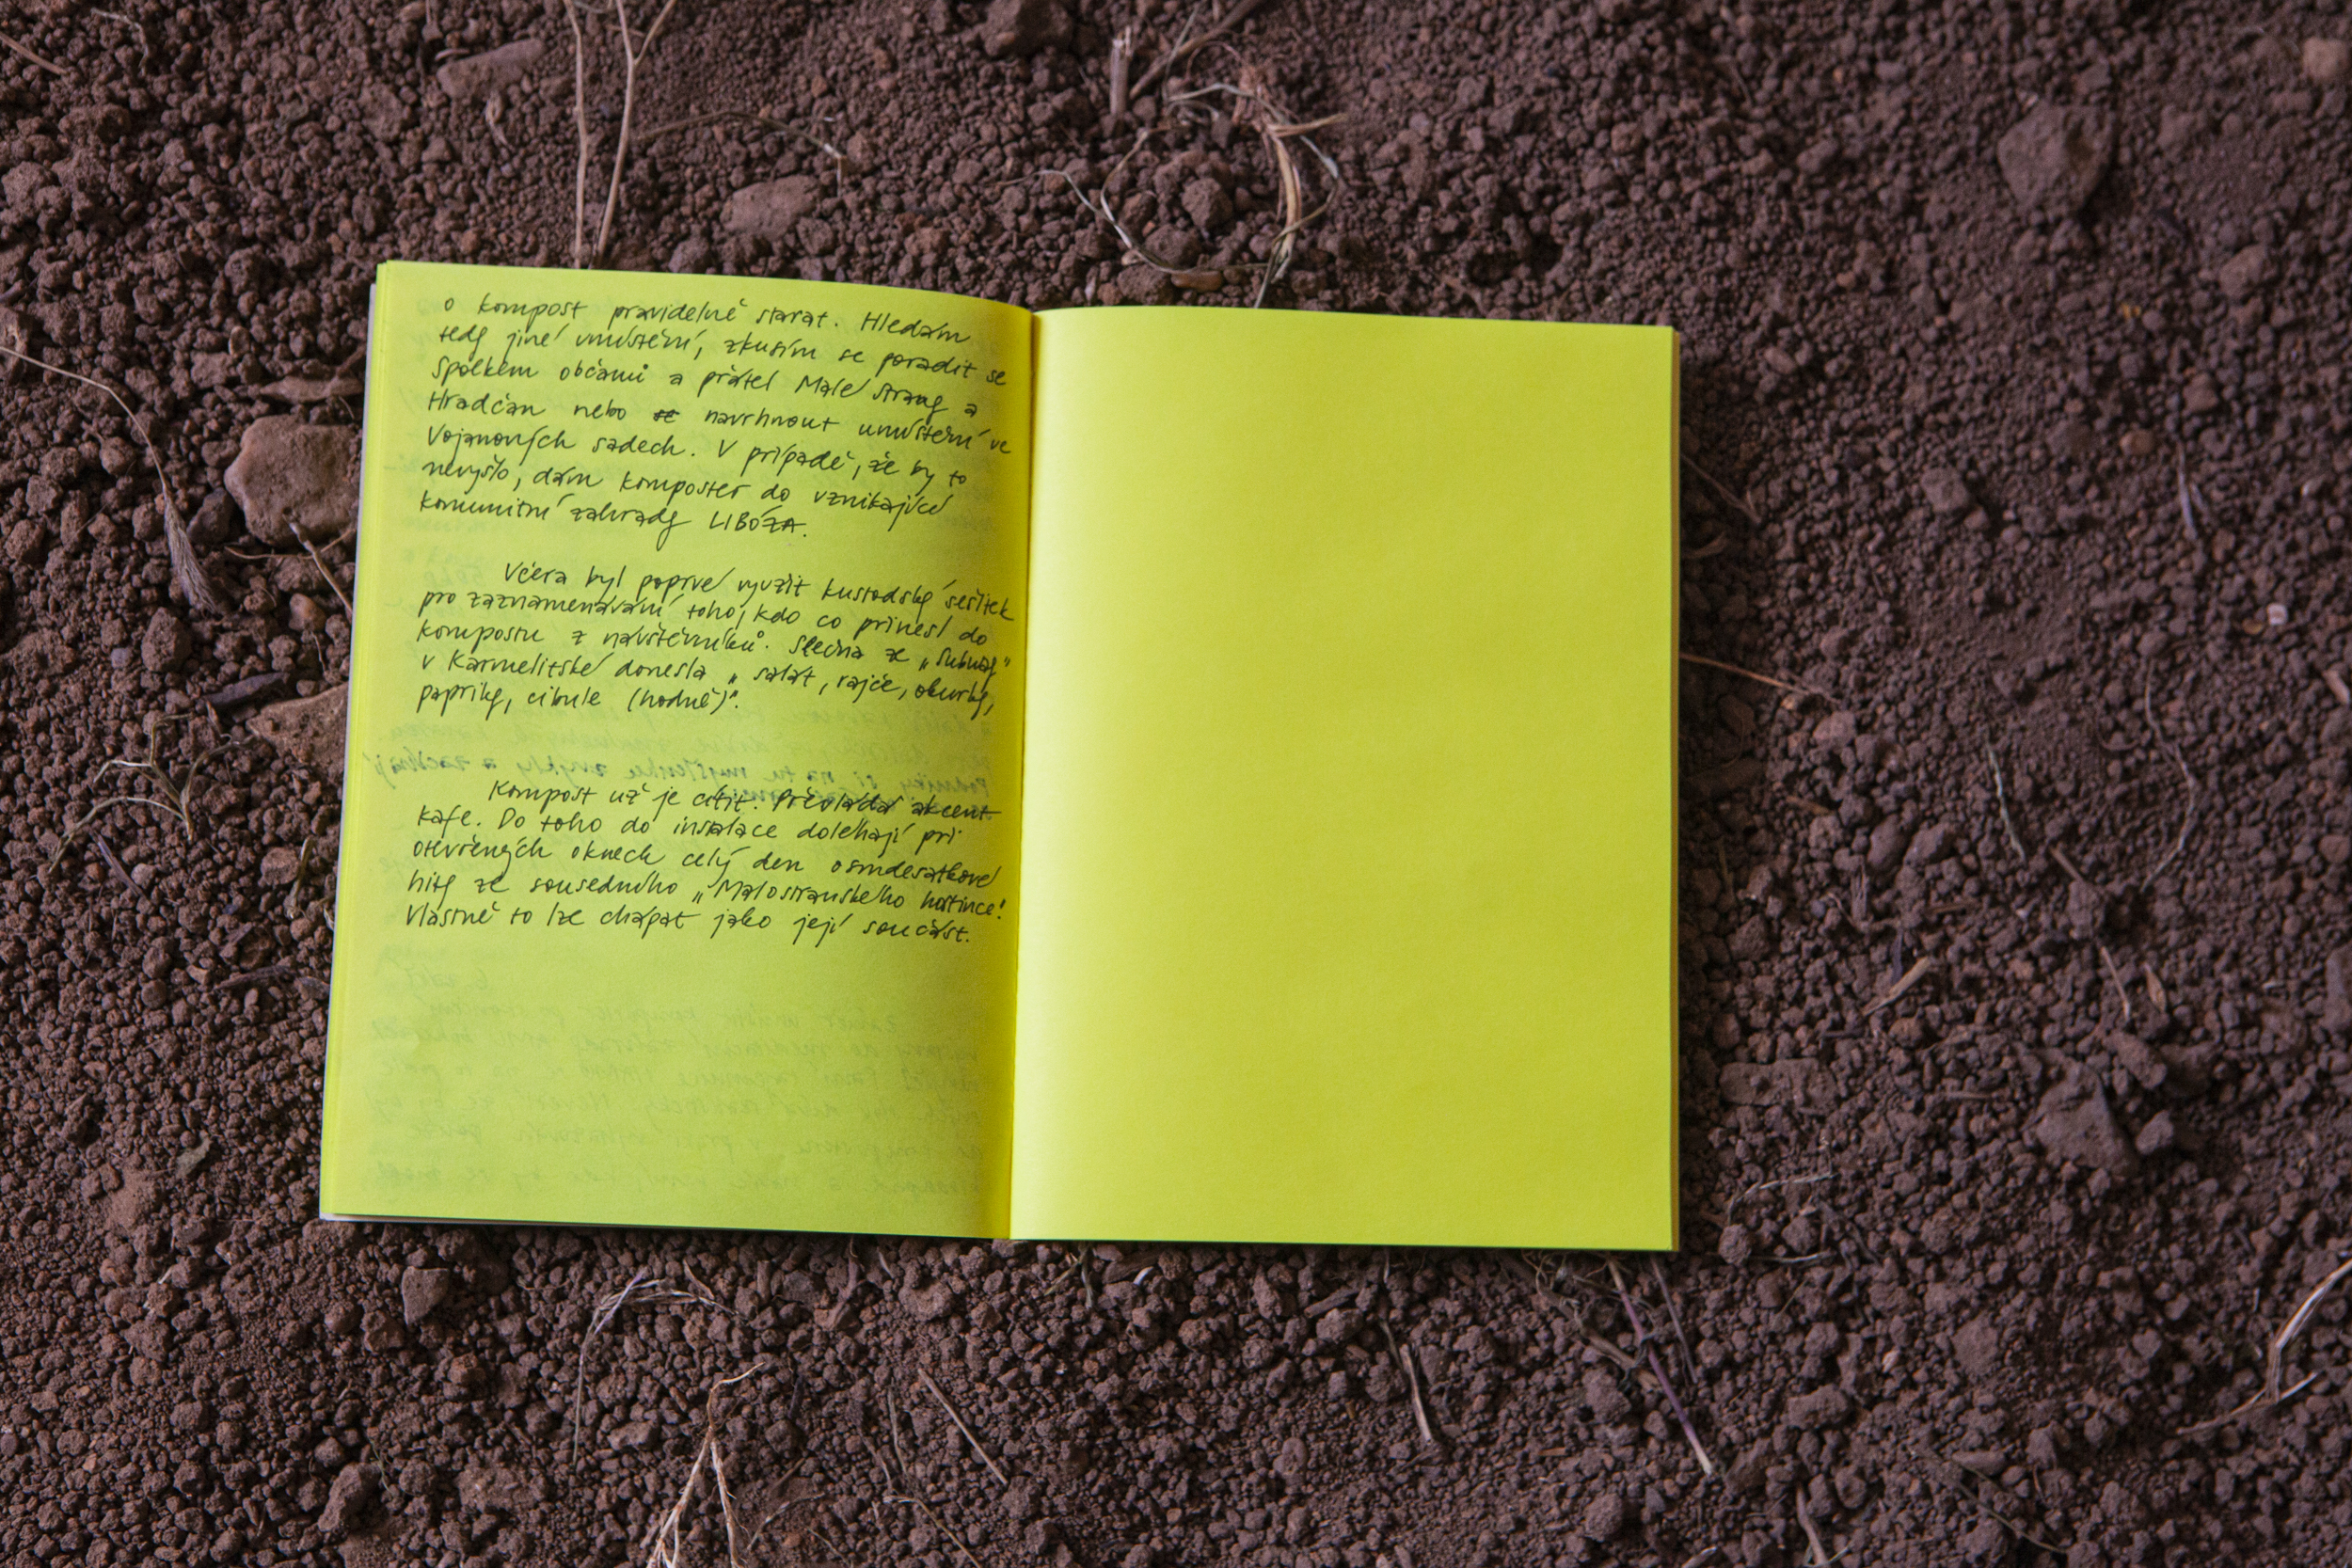 o kompost pravidelně starat. Hledám
tedy jiné umístění, zkusím se poradit se
Spolkem občanů a přátel Malé Strany a
Hradčan nebo se navrhnout umístění ve
Vojanových sadech. V případě, že by to
nevyšlo, dám kompostér do vznikající
komunitní zahrady LIBÓZA.
Včera byl poprvé využit kustodský sešítek
pro zaznamenávání toho, kdo co přinesl do
kompostu z návštěvníků. Slečna ze „Subway"
v Karmelitské donesla „salát, rajče, okurky,
papriky, cibule (hodně)".
Kompost už je cítit. Převládá akcent
kafe. Do toho do instalace doléhají při
otevřených oknech celý den osmdesátkové
hity ze sousedního „Malostranského hostince".
Vlastně to lze chápat jako její součást.